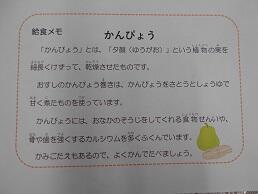 給食メモ
かんぴょう
「かんぴょう」とは、「夕顔（ゆうがお）」という植物の実を
細長くけずって、乾燥させたものです。
おすしのかんぴょう巻きは、かんぴょうをさとうとしょうゆで
甘く煮たものを使っています。
かんぴょうには、おなかのそうじをしてくれる食物せんいや、
骨や歯を強くするカルシウムが多くふくんでいます。
かみごたえもあるので、よくかんでたべましょう。